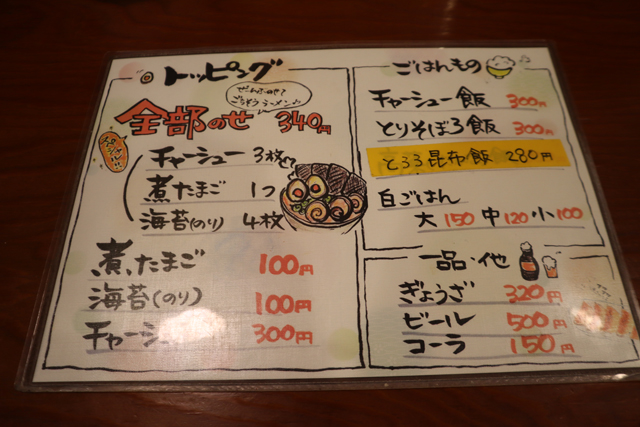 トッピング
ぜんぶのせで
ごうそうラーメン♪
全部のせ 340円
チャーシュー 3枚
煮たまご 1つ
海苔(のり) 4枚
煮たまご 100円
海苔(のり) 100円
チャーシュー 300円
ごはんもの
チャーシュー飯 300円
とりそぼろ飯 300円
とろろ昆布飯 280円
白ごはん
大150 中120 小100
一品・他
ぎょうざ 320円
ビール 500円
コーラ 150円